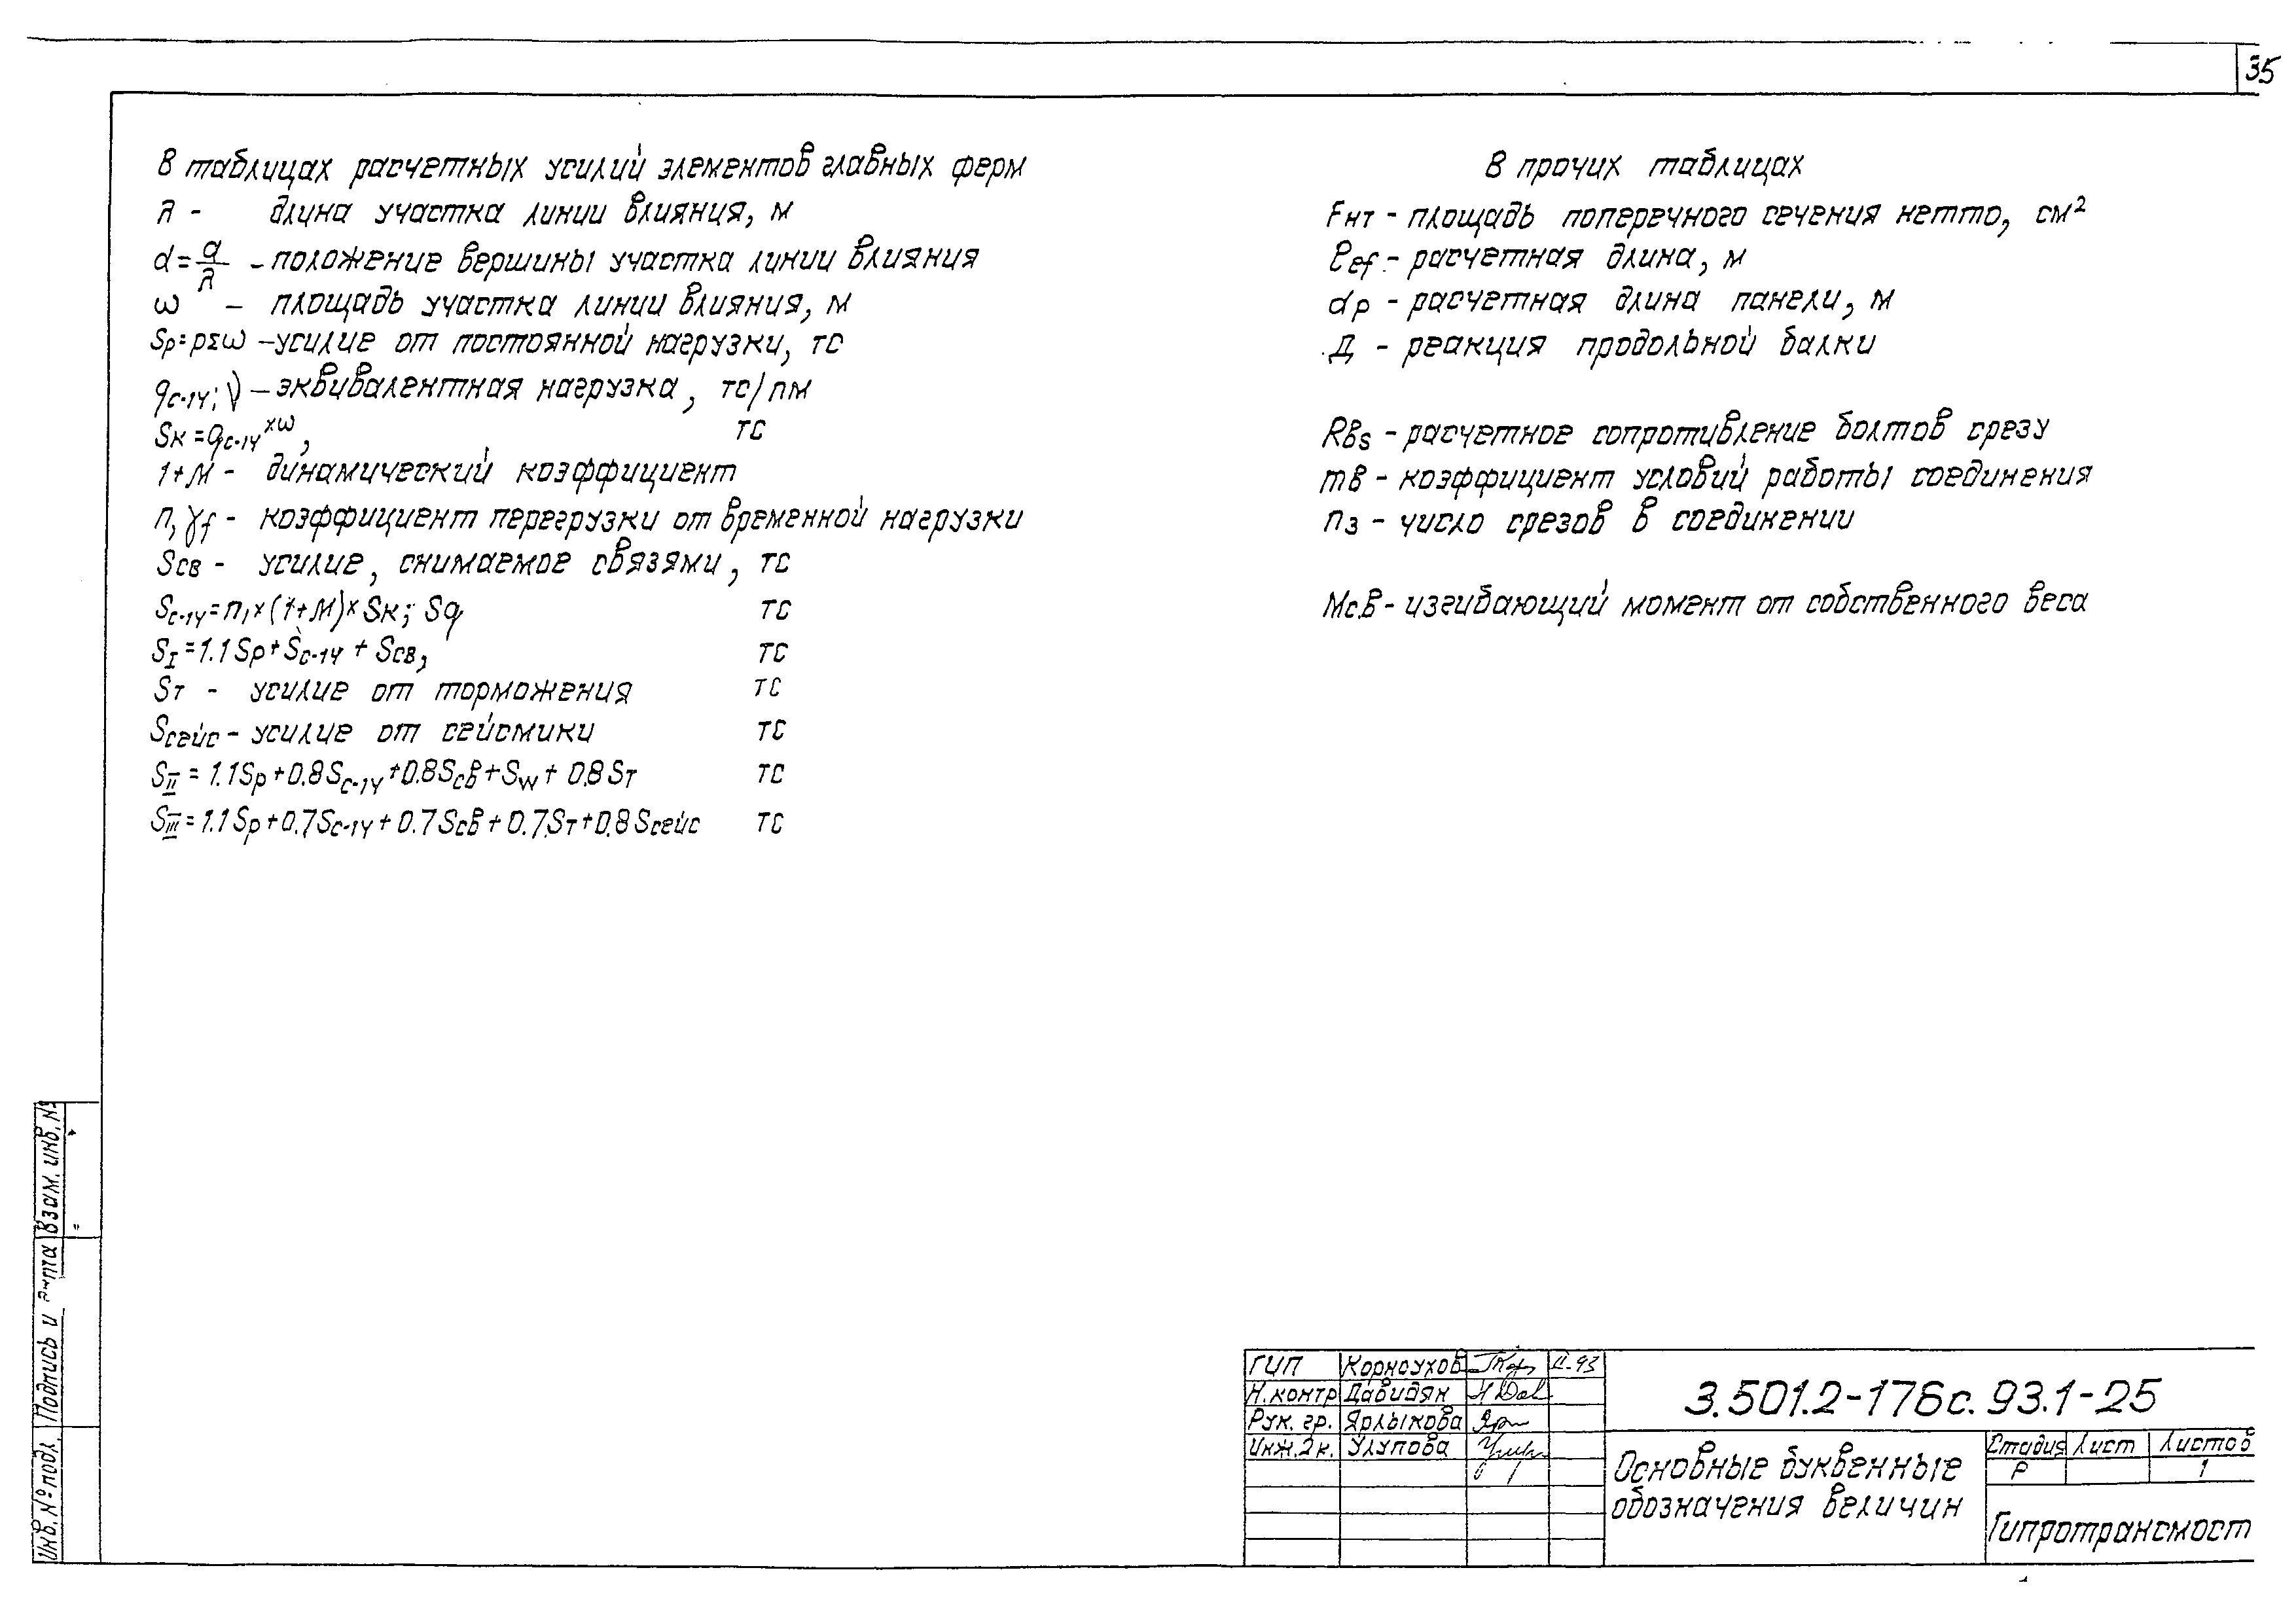 35
В таблицах расчетных усилий элементов главных ферм
λ - длина участка линии влияния, м
α = a/λ - положение вершины участка линии влияния
ω - площадь участка линии влияния, м
Sp=pΣω - усилие от постоянной нагрузки, тс
qс-14; ν - эквивалентная нагрузка, тс/пм
Sк = qс-14 xω, тс
1+М - динамический коэффициент
n, γf - коэффициент перегрузки от временной нагрузки
Sсв - усилие, снимаемое связями, тс
Sс-14 = n, x (1+М) x Sк; Sq тс
SI = 1.1 Sp + Sс-14 + Sсв, тс
Sт - усилие от торможения тс
Sсейс - усилие от сейсмики тс
SII = 1.1Sp + 0.8Sс-14 + 0.8Sсв + Sw + 0.8 Sт тс
SIII = 1.1 Sp + 0.7Sс-14 + 0.7 Sсв + 0.7.Sт + 0.8 Sсейс тс
В прочих таблицах
Fнт - площадь поперечного сечения нетто, см²
ℓef - расчетная длина, м
dp - расчетная длина панели, м
Д - реакция продольной балки
Rвs - расчетное сопротивление болтов срезу
mв - коэффициент условий работы соединения
nз - число срезов в соединении
Мс.в - изгибающий момент от собственного веса
Взам. инв. №
Подпись и
Инв. № подл.
ГИП Корноухов II-93
Н.контр Давидян
Рук. гр. Ярлыкова
Инж.2к. Улупова
3.501.2-176с.93.1-25
Основные буквенные
обозначения величин
Стадия Лист Листов
Р 1
Гипротрансмост